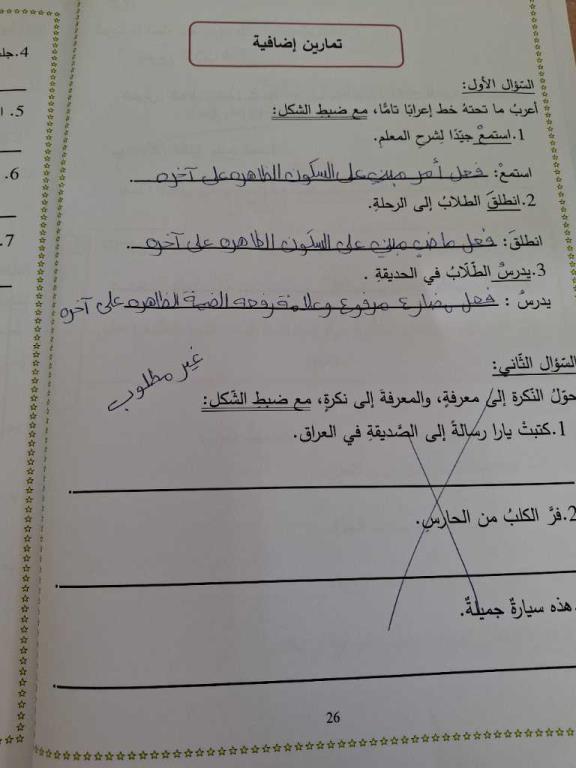 تمارين إضافية
السّؤال الأول:
أعربُ ما تحتهُ خط إعرابًا تامًّا، مع ضبطِ الشكل:
1.استمعْ جيّدًا لِشرحِ المعلم.
استمعْ: فعل أمر مبني على السكون الظاهره على آخره
2.انطلقَ الطلابُ إلى الرحلةِ.
انطلقَ: فعل ماضي مبني على السكون الظاهره على آخره
3.يدرسُ الطّلّابُ في الحديقةِ .
يدرسُ : فعل مضارع مرفوع وعلامة رفعه الضمة الظاهره على آخره
السّؤال الثّاني:
غير مطلوب
حوّلُ النّكرة إلى معرفةٍ، والمعرفةَ إلى نكرةٍ، مع ضبطِ الشّكل:
1.كتبتْ يارا رسالةً إلى الصّديقةِ في العراق.
2.فرَّ الكلبُ من الحارسِ.
.هذه سيارةٌ جميلةٌ.
26
4.جل
5. ا
6.
7.